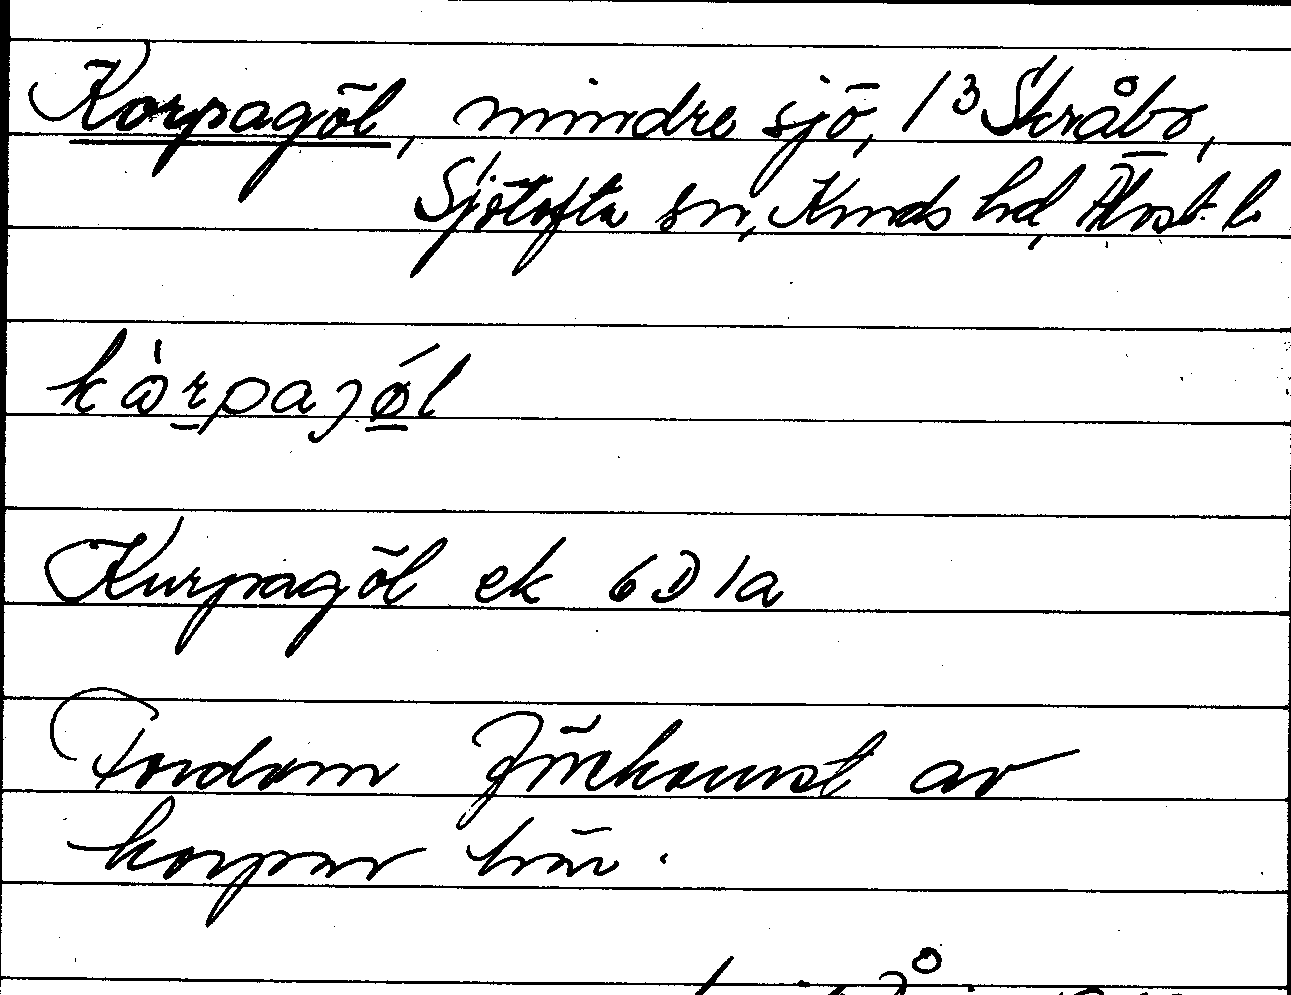 Korpagöl, mindre sjö, 1³ Skråbo,
Sjötofta sn, Kinds hd, Älvsb. l.
kɷ̀rpajǿl
Kurpagöl ek 6D1a
Fordom förekomst av
korpar här.